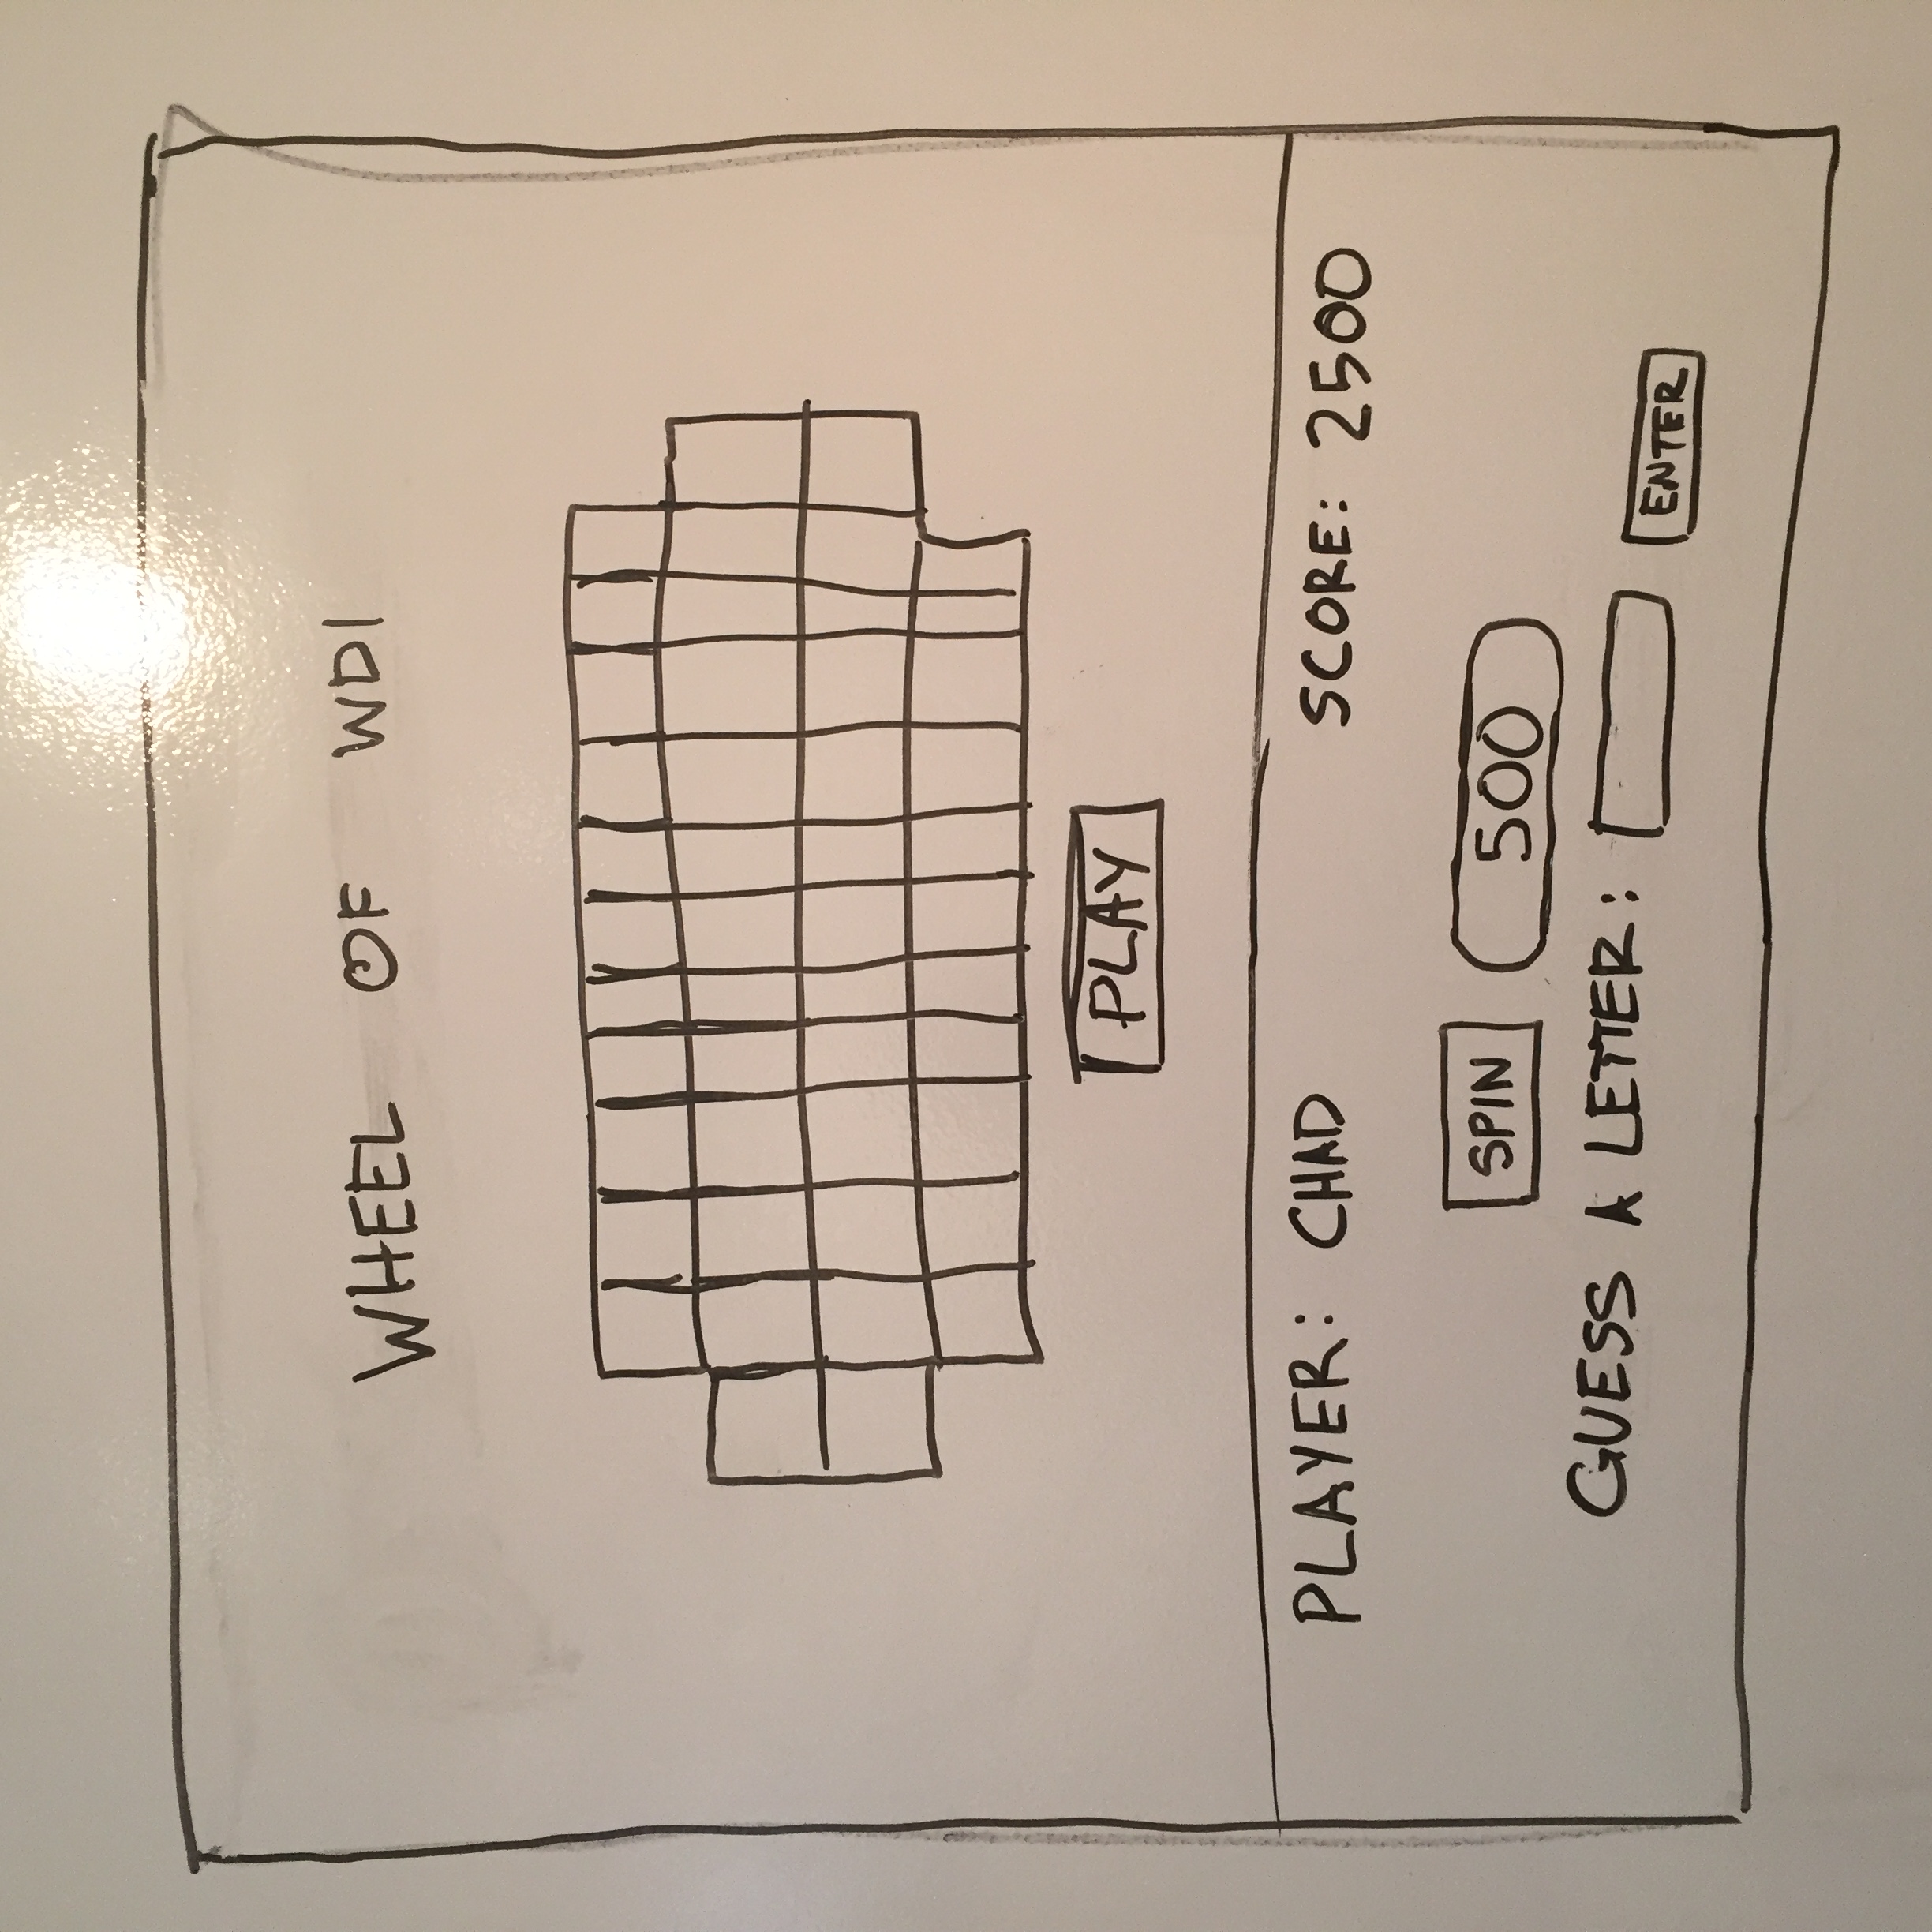 WHEEL OF WDI
PLAY
PLAYER: CHAD SCORE: 2500
SPIN 500
GUESS A LETTER: ENTER